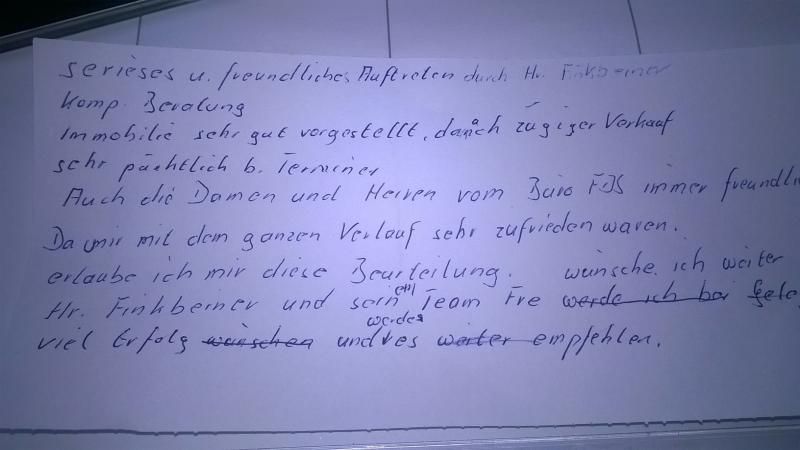 serieses u. freundliches Auftreten durch Hr. Finkbeiner
Komp. Beratung
Immobilie sehr gut vorgestellt, danach zügiger Verkauf
sehr pächtlich b. Terminer
Auch die Damen und Herren vom Büro immer freundli
Da wir mit dem ganzen Verlauf sehr zufrieden waren.
erlaube ich mir diese Beurteilung. wünsche ich weiter
Hr. Finkbeiner und sein em Team werde ich bei
viel Erfolg wünschen und werde es weiter empfehlen.